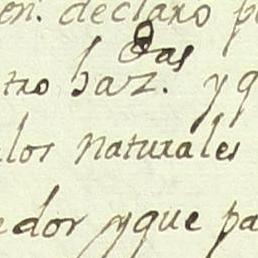 en. declaro p
das
tro haz. yq
los naturales
edor yque pa